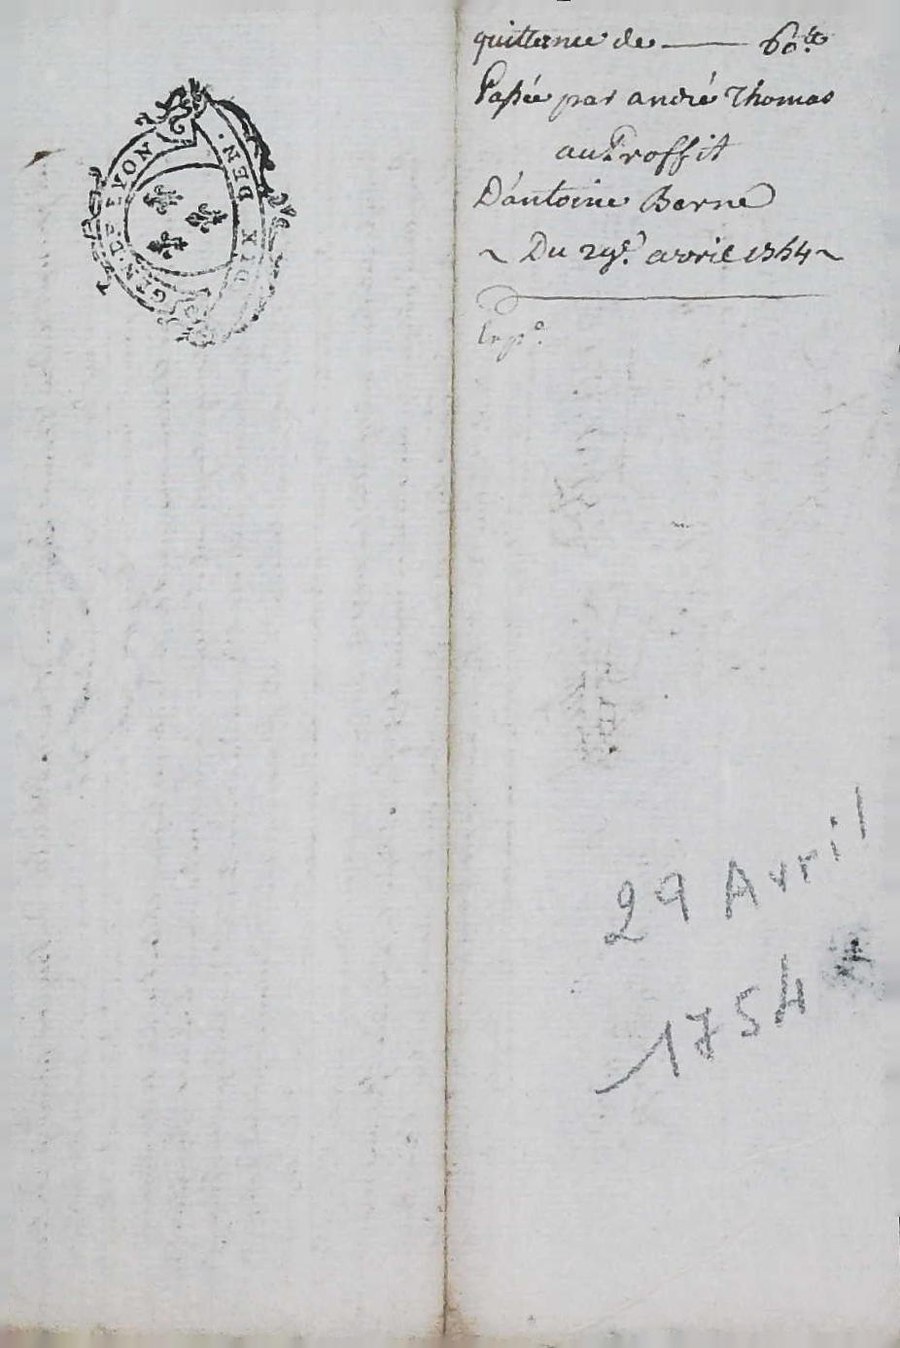 GEN. DE LYON
DIX DEN.
quittance de —— 60.ᵗᵗ
Passée par andré Thomas
au Proffit
D'antoine Berne
~ Du 29ᵉ. avril 1754 ~
Exp°.
29 Avril
1754